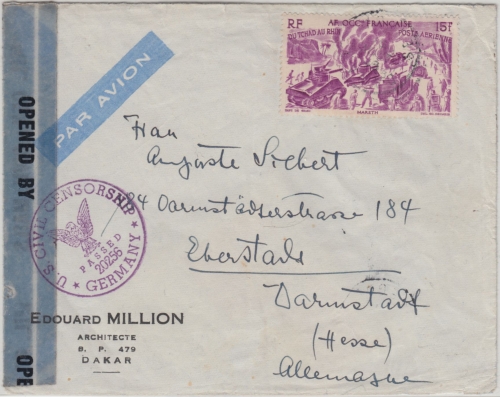 RF AF. OCC. FRANÇAISE 15F
DU TCHAD AU RHIN POSTE AERIENNE
MARETH
PAR AVION
OPENED BY
OPE
U.S. CIVIL CENSORSHIP
PASSED
20256
GERMANY
Frau
Auguste Siebert
24 Darmstädterstrasse 184
Eberstadt
Darmstadt
(Hesse)
Allemagne
EDOUARD MILLION
ARCHITECTE
B. P. 479
DAKAR